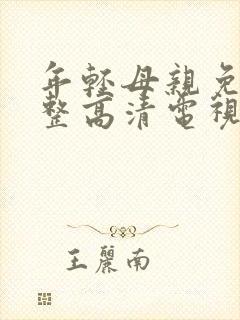 年輕母親免
整高清電視
王麗南